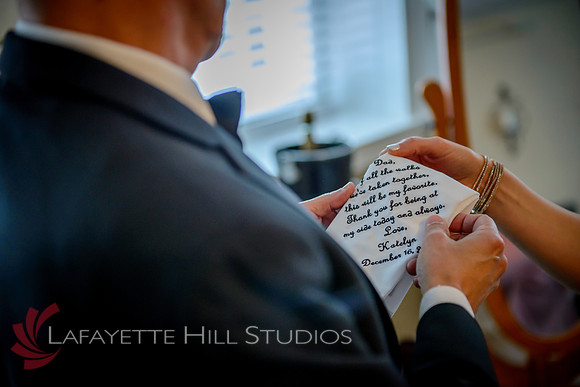 Dad,
all the walks
taken together,
this will be my favorite.
Thank you for being at
my side today and always.
Love,
Katelyn
December 16,
LAFAYETTE HILL STUDIOS